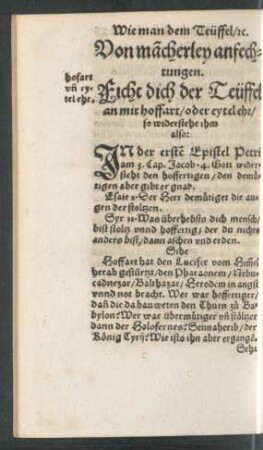 Wie man dem Teüffel/ ꝛc.
Von mācherley anfech-
tungen.
hofart
vñ ey-
tel ehr.
Ficht dich der Teüffel
an mit hoffart/ oder eytel ehr/
so widerstehe ihm
also:
IN der erstē Epistel Petri
am 5. Cap. Jacob. 4. Gott wider-
steht den hoffertigen/ den demü-
tigen aber gibt er gnad.
Esaie 2. Der Herr demütiget die au-
gen der stoltzen.
Syr 10. Was überhebstu dich mensch/
bist stoltz vnnd hoffertig/ der du nichts
anders bist/ dann aschen vnd erden.
Sihe
Hoffart hat den Lucifer vom Himel
herab gestürtzt/ den Pharaonem/ Nebu-
cadnezar/ Balthazar/ Herodem in angst
vnnd not bracht. Wer war hoffertiger/
dañ die da bauweten den Thurn zů Ba-
bylon? Wer war übermütiger vñ stöltzer
dann der Holofernes? Sennaherib/ der
König Tyri? Wie ists ihn aber ergangē.
Seha